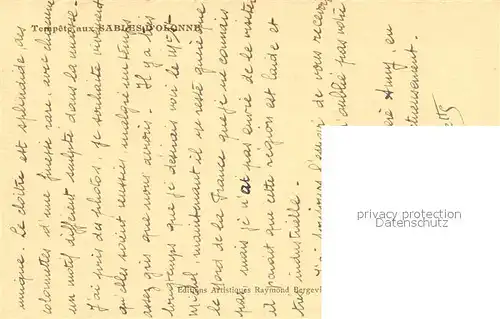 Tempête aux SABLES D'OLONNE
unique. Le cloître est splendide, des
colonnettes d'une finesse rare, avec chacune
un motif différent sculpté dans la masse.
J'ai pris des photos, je souhaite vraiment
qu'elles soient réussies malgré un temps
assez gris que nous avions. Il y a très
longtemps que je désirais voir le Mt St
Michel, maintenant il ne reste guère que
le Nord de la France que je ne connais
pas mais je n'ai pas envie de le visiter
il paraît que cette région est laide et
très industrielle.
de vous recevoir
oublié pas notre
Anny, en
ctueusement.
Editions Artistiques Raymond Bergevi
PROVIDED BY
delcampe.net